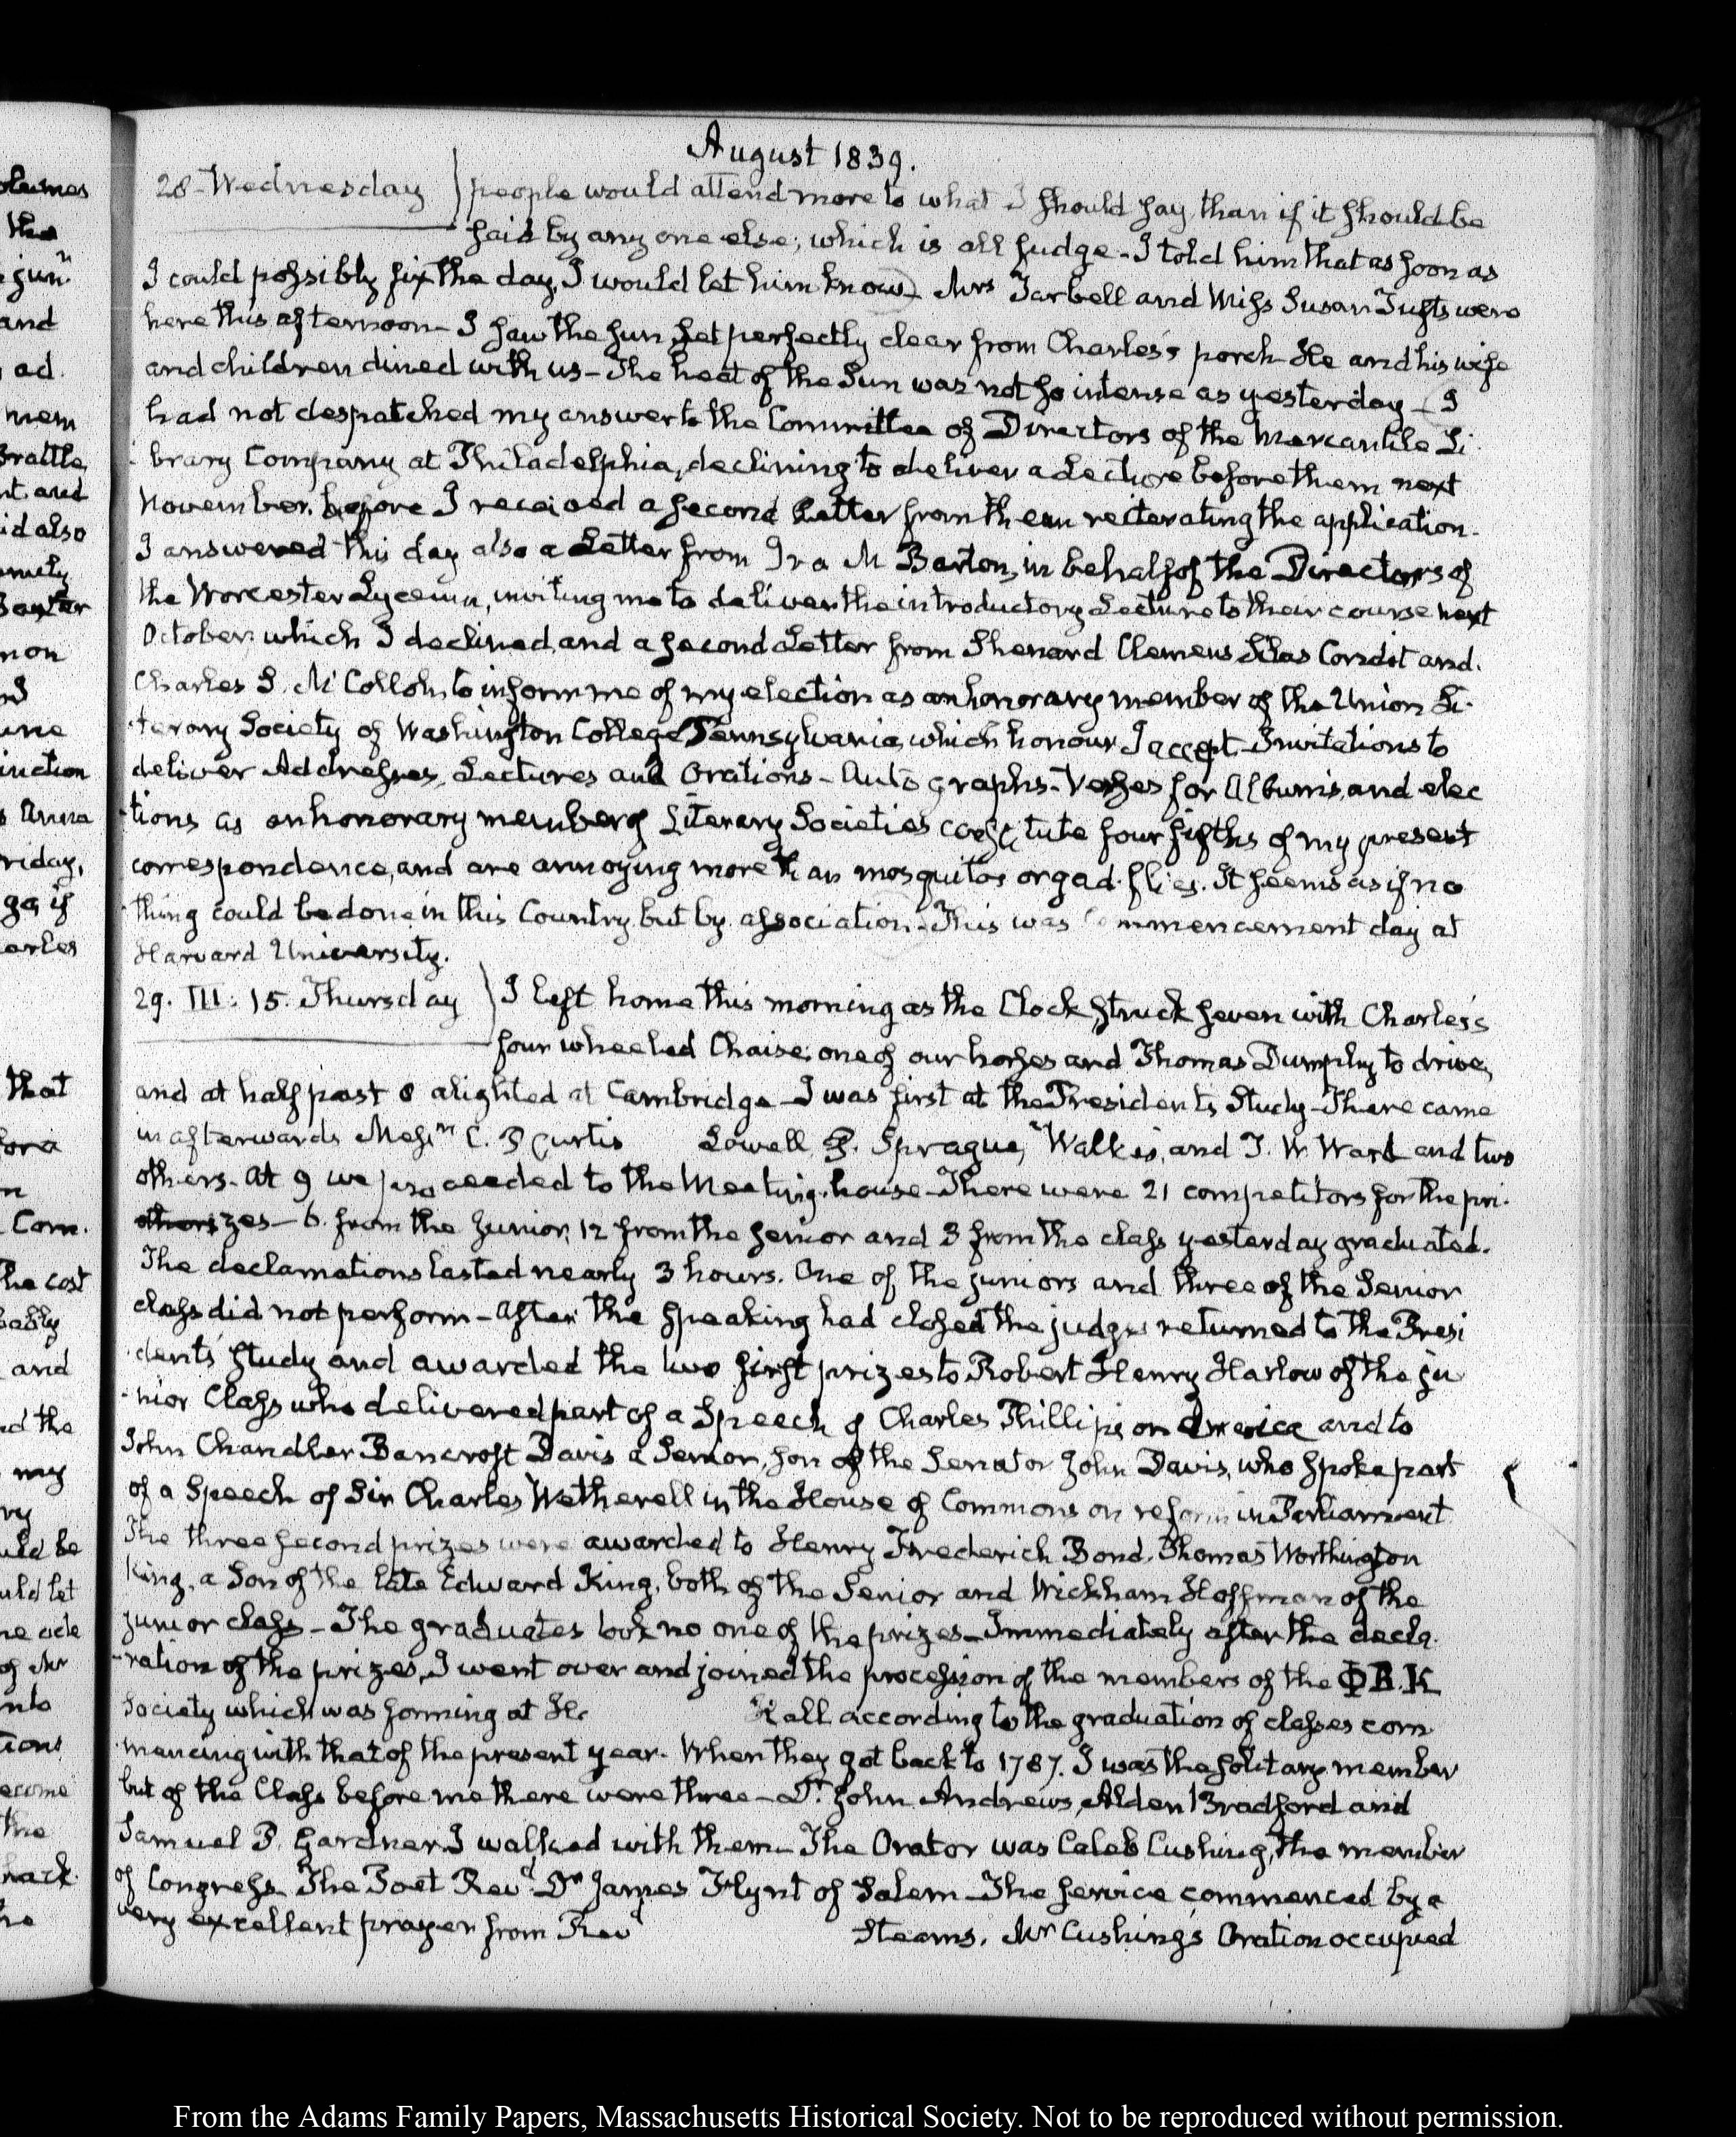 August 1839.
28 - Wednesday } people would attend more to what I should say, than if it should be
said by any one else; which is all fudge - I told him that as soon as
I could possibly fix the day, I would let him know - Mrs Tarbell and Miss Susan Tufts were
here this afternoon - I saw the Sun set perfectly clear from Charles's porch - He and his wife
and children dined with us - The heat of the Sun was not so intense as yesterday - I
had not despatched my answer to the Committee of Directors of the Mercantile Li-
brary Company at Philadelphia, declining to deliver a Lecture before them next
November, before I received a second Letter from them reiterating the application.
I answered this day also a Letter from Ira M Barton, in behalf of the Directors of
the Worcester Lyceum, inviting me to deliver the introductory Lecture to their course next
October, which I declined, and a second Letter from Sherrard Clemens Silas Condit and
Charles S. Mc Colloh, to inform me of my election as an honorary member of the Union Li-
terary Society of Washington College Pennsylvania, which honour I accept - Invitations to
deliver Addresses, Lectures and Orations - Autographs - Verses for Albums, and elec
tions as an honorary member of Literary Societies constitute four fifths of my present
correspondence, and are annoying more than mosquitos or gad-flies. It seems as if no
thing could be done in this Country but by association - This was Commencement day at
Harvard University.
29. III: 15. Thursday } I left home this morning as the Clock struck seven with Charles's
four wheeled Chaise; one of our horses and Thomas Dumphy to drive,
and at half past 8 alighted at Cambridge - I was first at the Presidents Study - There came
in afterwards Messrs C. P Curtis Lowell P. Sprague, Walker, and T. W. Ward and two
others. At 9 we proceeded to the Meeting-house - There were 21 competitors for the pri-
zes - 6. from the Junior, 12 from the Senior and 3 from the class yesterday graduated.
The declamations lasted nearly 3 hours. One of the juniors and three of the Senior
class did not perform - After the speaking had closed the judges returned to the Presi
dents' Study and awarded the two first prizes to Robert Henry Harlow of the ju
-nior Class who delivered part of a Speech of Charles Phillips on America and to
John Chandler Bancroft Davis a Senior, son of the Senator John Davis, who spoke part
of a Speech of Sir Charles Wetherell in the House of Commons on reform in Parliament
The three second prizes were awarded to Henry Frederich Bond, Thomas Worthington
King, a Son of the late Edward King, both of the Senior and Wickham Hoffman of the
junior class - The graduates took no one of the prizes - Immediately after the decla-
-ration of the prizes, I went over and joined the procession of the members of the ΦB.K
Society which was forming at Ho Hall according to the graduation of classes com
mencing with that of the present year. When they got back to 1787. I was the solitary member
but of the Class before me there were three - Dr John Andrews, Alden Bradford and
Samuel P. Gardner. I walked with them - The Orator was Caleb Cushing, the member
of Congress - The Poet Revd Dr James Flynt of Salem - The service commenced by a
very excellent prayer from Revd Stearns. Mr Cushing's Oration occupied
From the Adams Family Papers, Massachusetts Historical Society. Not to be reproduced without permission.